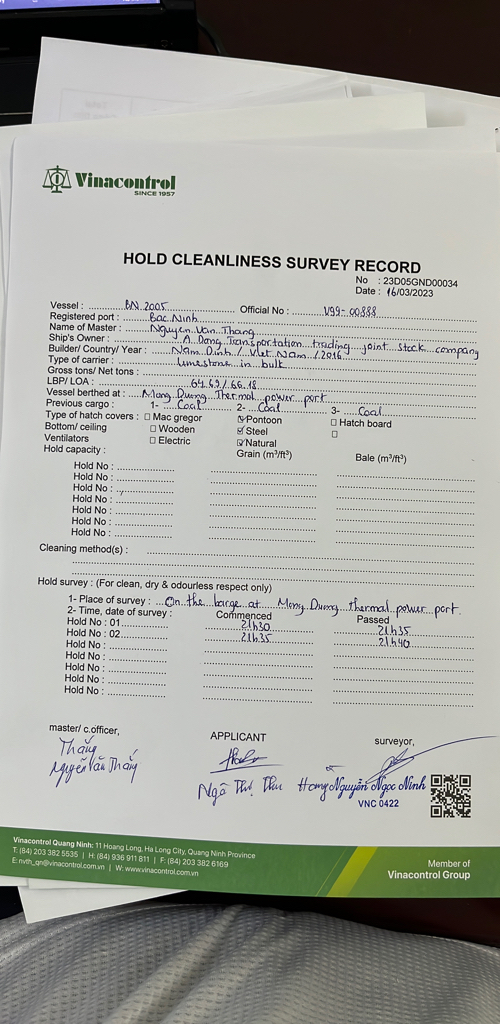 Vinacontrol
SINCE 1957
HOLD CLEANLINESS SURVEY RECORD
No : 23D05GND00034
Date : 16/03/2023
Vessel : BN 2005 Official No : V99-00888
Registered port : Bac Ninh
Name of Master : Nguyen Van Thang
Ship's Owner : A Dong Transportation trading joint stock company
Builder/ Country/ Year : Nam Dinh / Viet Nam / 2016
Type of carrier : Limestone in bulk
Gross tons/ Net tons :
LBP/ LOA : 64.69/66.18
Vessel berthed at : Mong Duong Thermal power port
Previous cargo : 1- Coal 2- Coal 3- Coal
Type of hatch covers : ☐ Mac gregor ☑ Pontoon ☐ Hatch board
Bottom/ ceiling ☐ Wooden ☑ Steel ☐
Ventilators ☐ Electric ☑ Natural
Hold capacity : Grain (m³/ft³) Bale (m³/ft³)
Hold No :
Hold No :
Hold No :
Hold No :
Hold No :
Hold No :
Hold No :
Cleaning method(s) :
Hold survey : (For clean, dry & odourless respect only)
1- Place of survey : On the barge at Mong Duong thermal power port.
2- Time, date of survey : Commenced Passed
Hold No : 01 21h30 21h35
Hold No : 02 21h35 21h40
Hold No :
Hold No :
Hold No :
Hold No :
Hold No :
master/ c.officer, APPLICANT surveyor,
Thắng
Nguyễn Văn Thắng Ngô Thị Thu Hương Nguyễn Ngọc Ninh
VNC 0422
Vinacontrol Quang Ninh: 11 Hoang Long, Ha Long City, Quang Ninh Province
T: (84) 203 382 5535 | H: (84) 936 911 811 | F: (84) 203 382 6169
E: nvth_qn@vinacontrol.com.vn | W: www.vinacontrol.com.vn
Member of
Vinacontrol Group